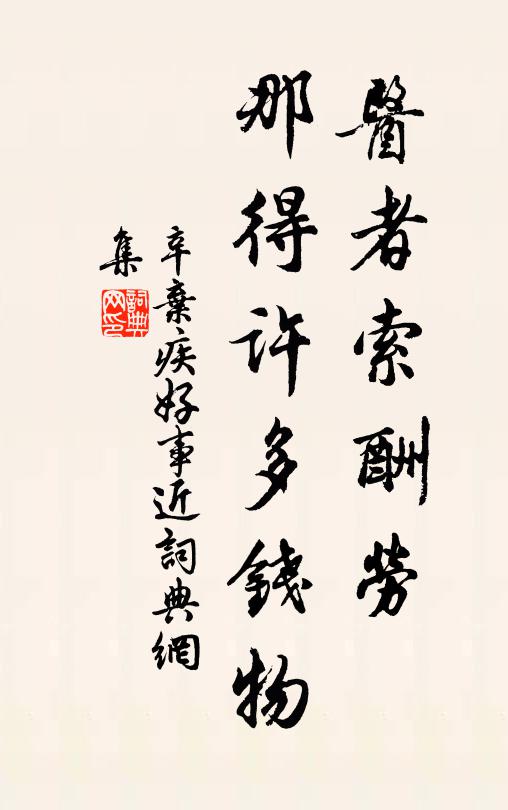 醫者索酬勞
那得許多錢物
辛棄疾好事近詞典網
集
詞典
网印